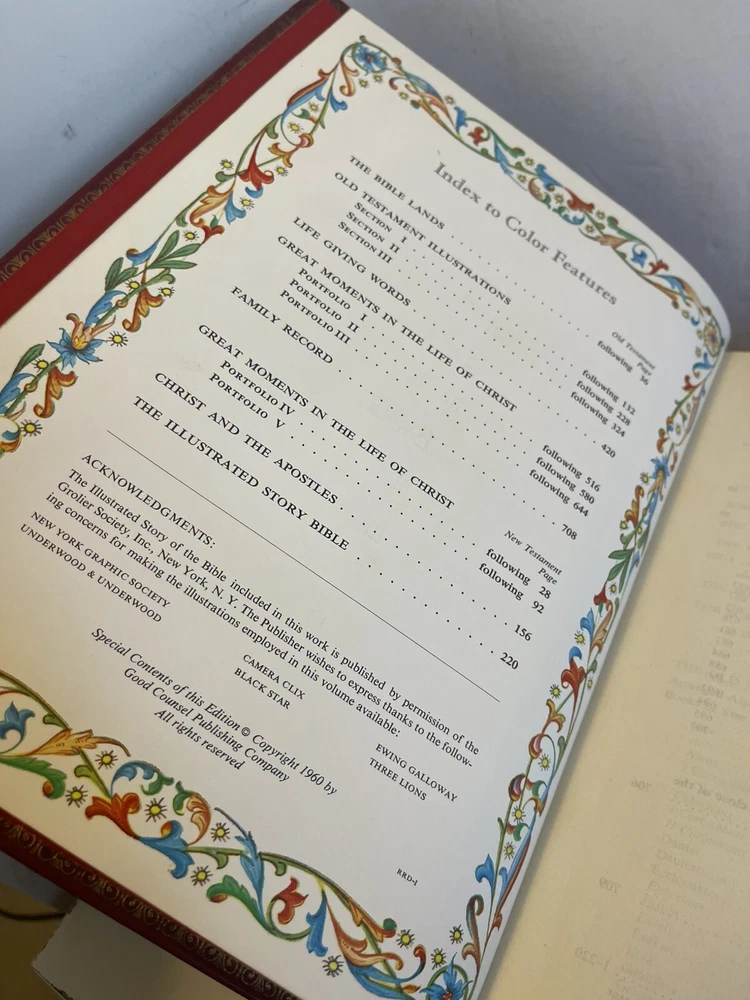 Index to Color Features
Old Testament
Page
THE BIBLE LANDS . . . . . . . . . . . . . . . following 36
OLD TESTAMENT ILLUSTRATIONS
SECTION I . . . . . . . . . . . . . . . following 132
SECTION II . . . . . . . . . . . . . . . following 228
SECTION III . . . . . . . . . . . . . . . following 324
LIFE GIVING WORDS . . . . . . . . . . . . . . . 420
GREAT MOMENTS IN THE LIFE OF CHRIST
PORTFOLIO I . . . . . . . . . . . . . . . following 516
PORTFOLIO II . . . . . . . . . . . . . . . following 580
PORTFOLIO III . . . . . . . . . . . . . . . following 644
FAMILY RECORD . . . . . . . . . . . . . . . 708
New Testament
Page
GREAT MOMENTS IN THE LIFE OF CHRIST
PORTFOLIO IV . . . . . . . . . . . . . . . following 28
PORTFOLIO V . . . . . . . . . . . . . . . following 92
CHRIST AND THE APOSTLES . . . . . . . . . . . . . . . 156
THE ILLUSTRATED STORY BIBLE . . . . . . . . . . . . . . . 220
ACKNOWLEDGMENTS:
The Illustrated Story of the Bible included in this work is published by permission of the
Grolier Society, Inc., New York, N. Y. The Publisher wishes to express thanks to the follow-
ing concerns for making the illustrations employed in this volume available:
NEW YORK GRAPHIC SOCIETY CAMERA CLIX EWING GALLOWAY
UNDERWOOD & UNDERWOOD BLACK STAR THREE LIONS
Special Contents of this Edition © Copyright 1960 by
Good Counsel Publishing Company
All rights reserved
RRD-1